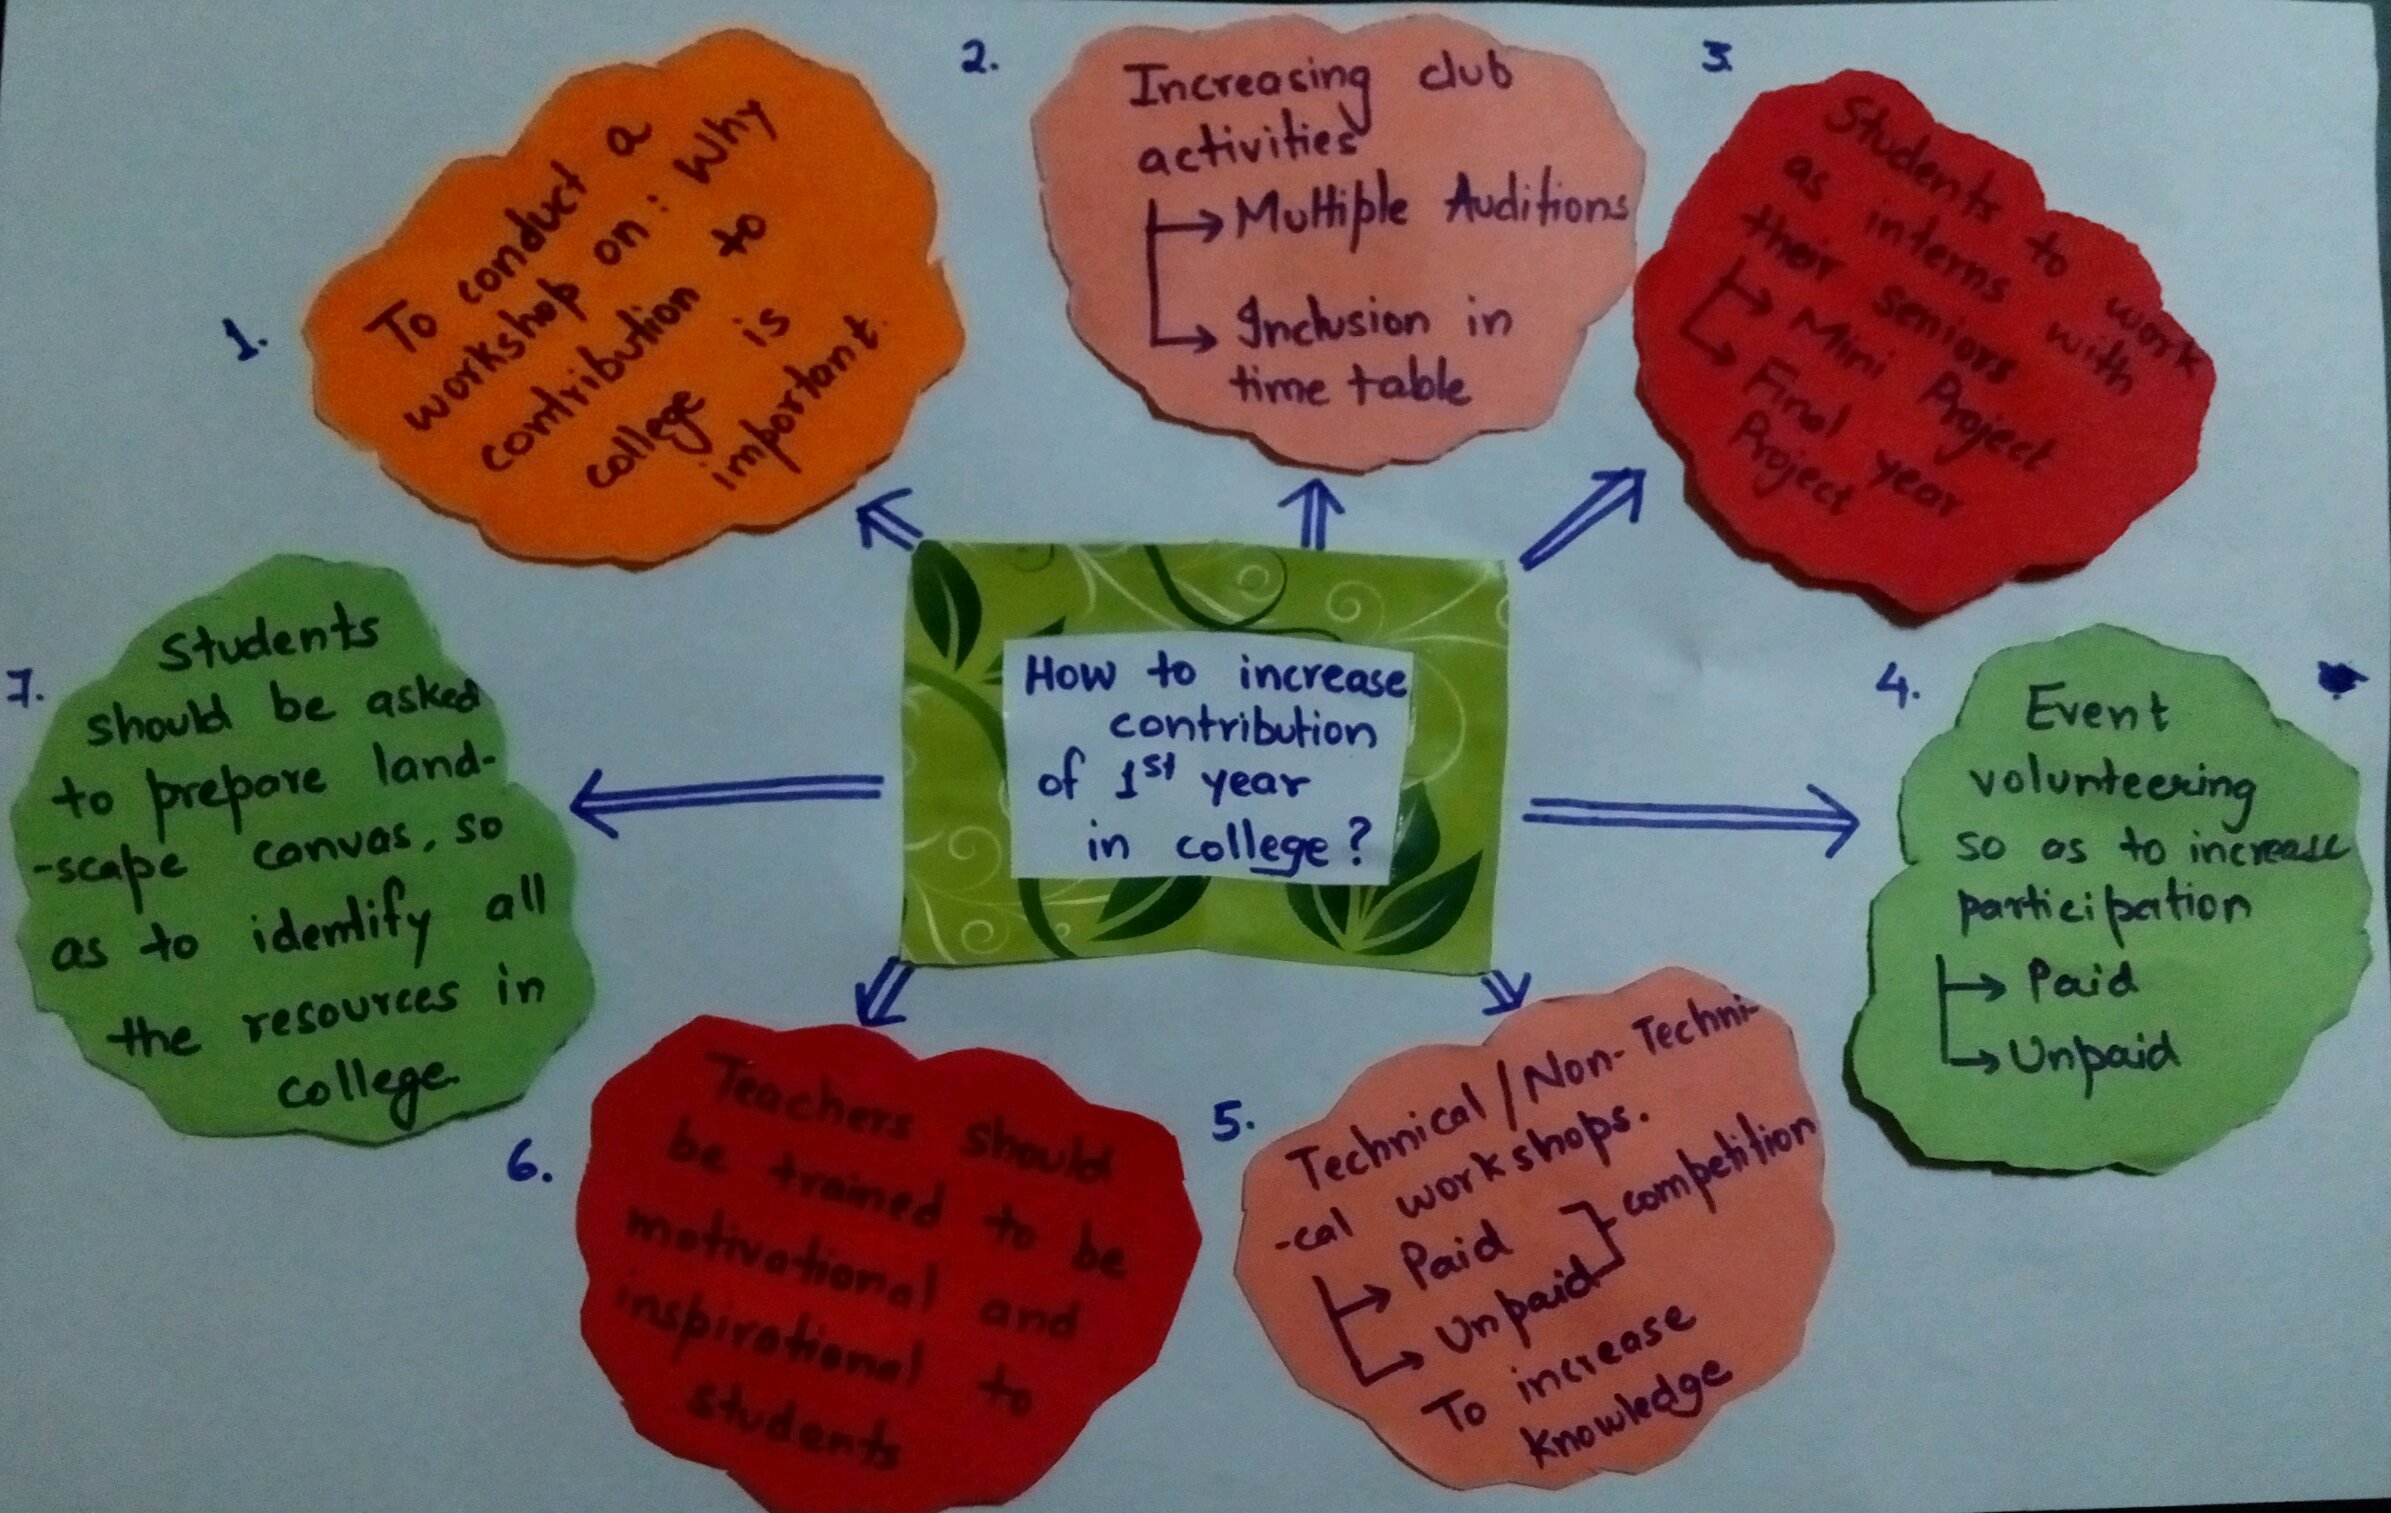 1.
To conduct a
workshop on: Why
contribution to
college is
important.
2.
Increasing club
activities
Multiple Auditions
Inclusion in
time table
3
Students to work
as interns with
their seniors
Mini Project
Final year
Project
How to increase
contribution
of 1st year
in college?
4.
Event
volunteering
so as to increase
participation
Paid
Unpaid
5.
Technical/Non-Techni-
-cal workshops.
Paid
Unpaid
competition
To increase
knowledge
6.
Teachers should
be trained to be
motivational and
inspirational to
students
7.
Students
should be asked
to prepare land-
-scape canvas, so
as to identify all
the resources in
college.